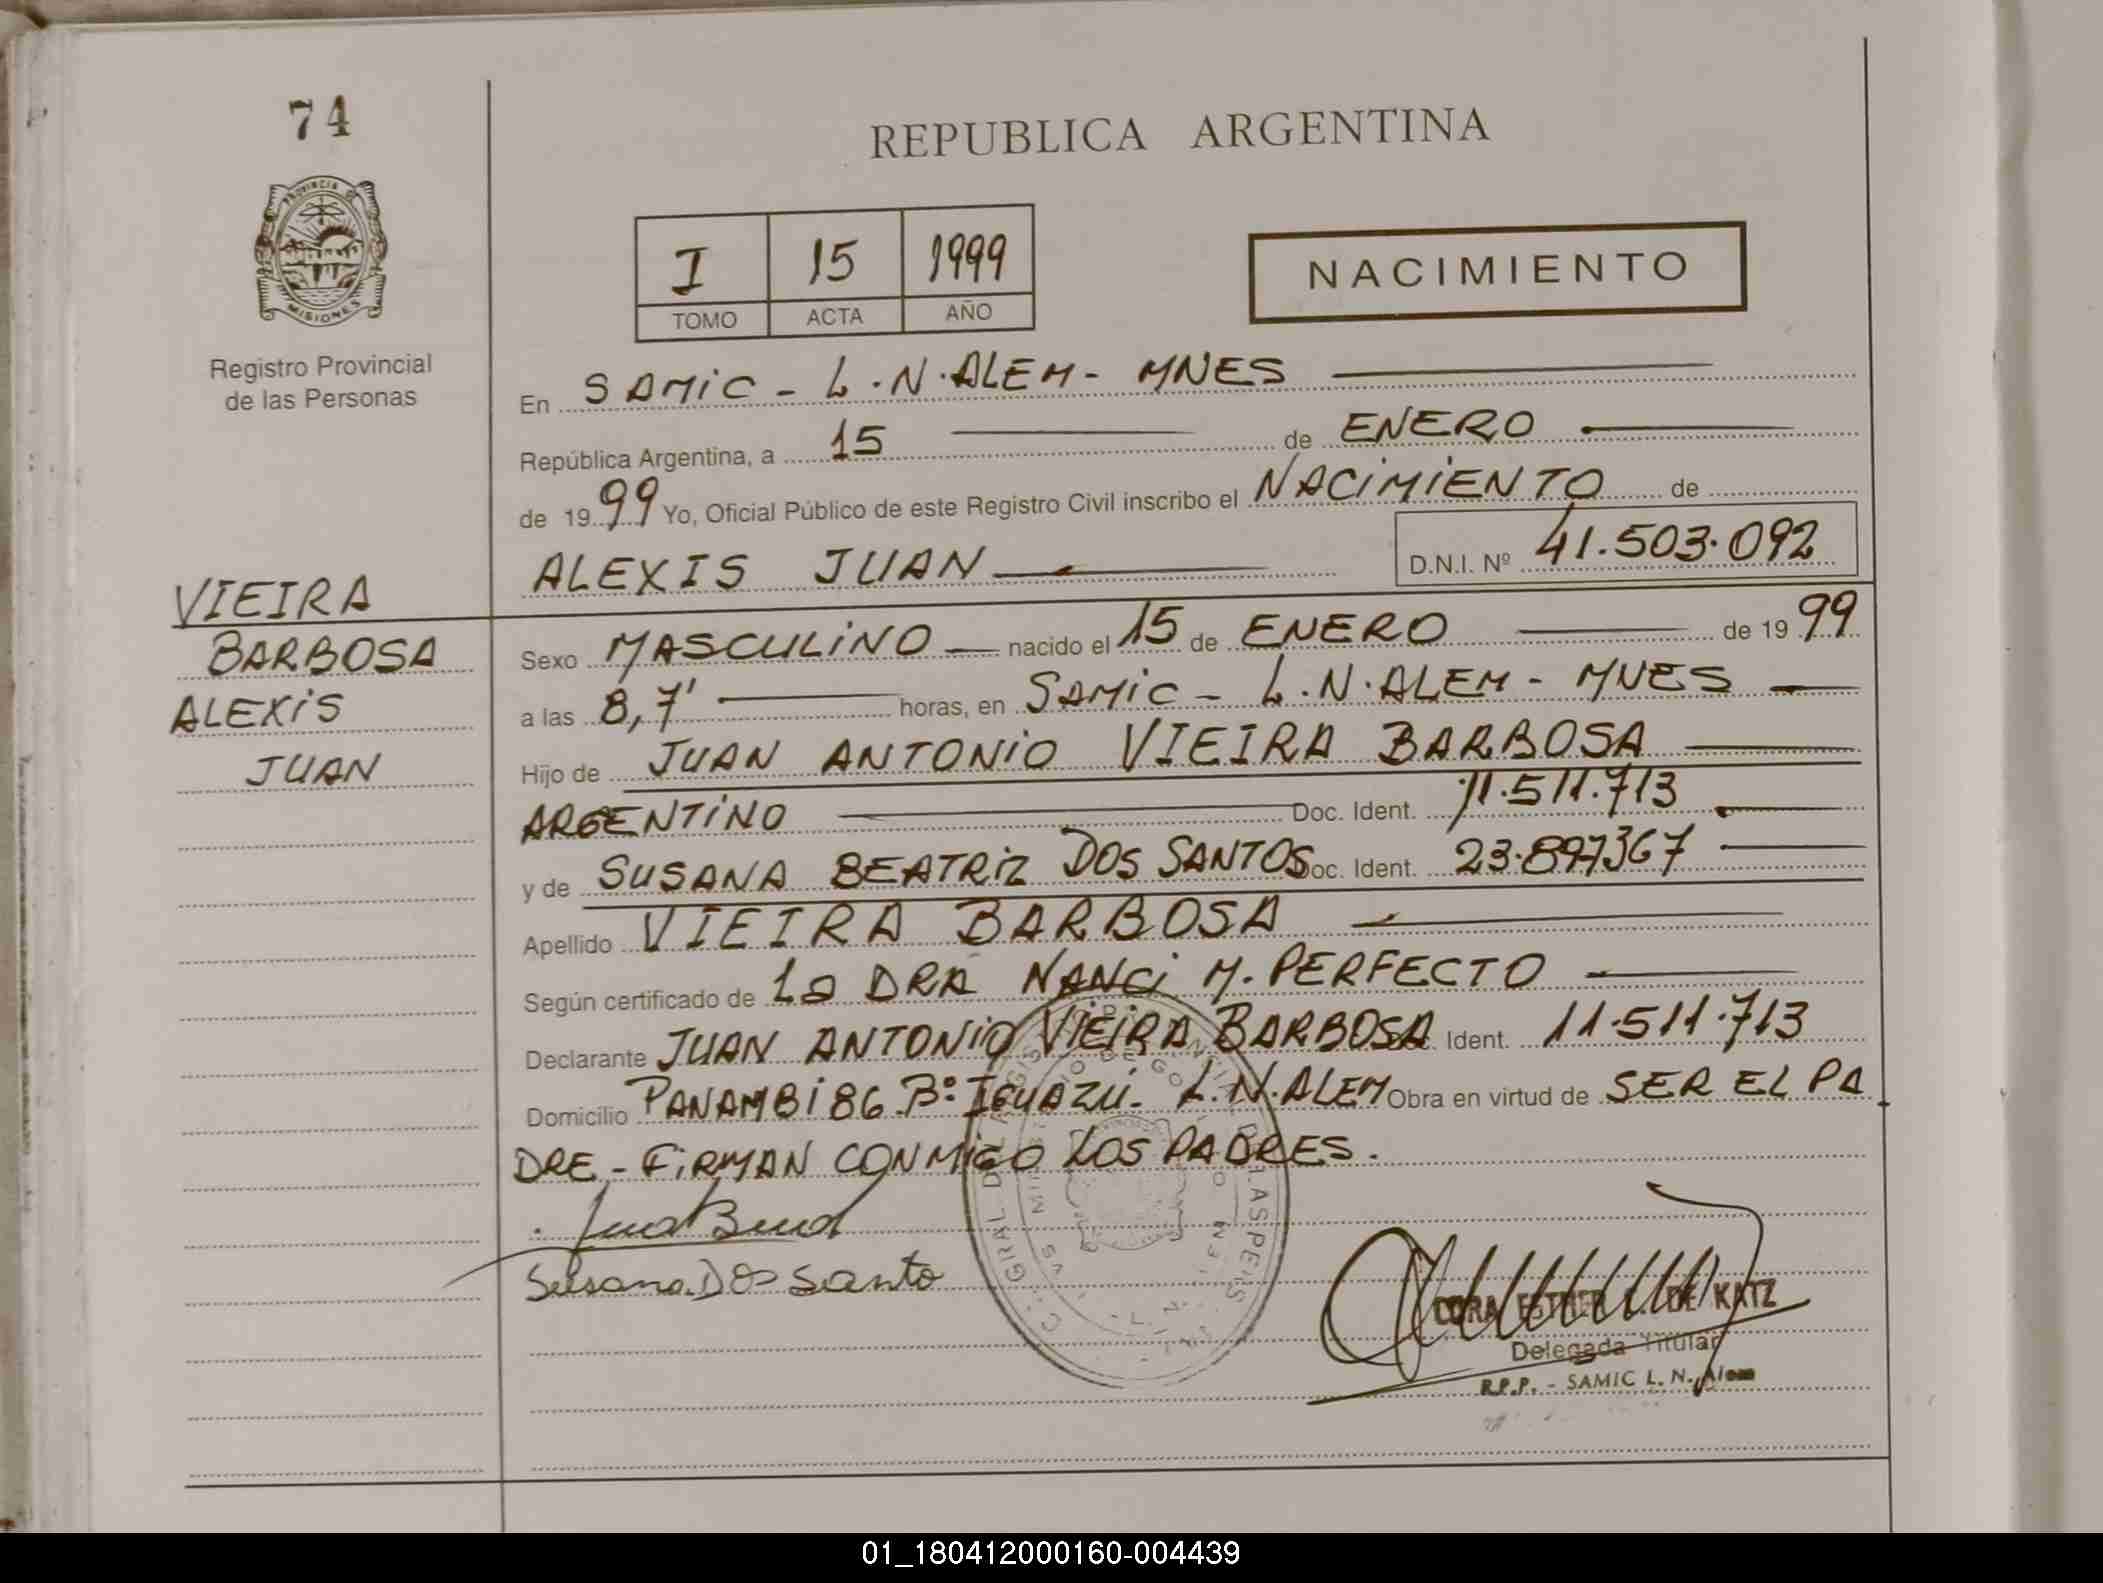 74
PROVINCIA DE
MISIONES
Registro Provincial
de las Personas
REPUBLICA ARGENTINA
I 15 1999
TOMO ACTA AÑO
NACIMIENTO
En SAMIC - L.N.ALEM - MNES
República Argentina, a 15 de ENERO
de 1999 Yo, Oficial Público de este Registro Civil inscribo el NACIMIENTO de
ALEXIS JUAN D.N.I. Nº 41.503.092
VIEIRA
BARBOSA
ALEXIS
JUAN
Sexo MASCULINO nacido el 15 de ENERO de 1999
a las 8,7' horas, en SAMIC - L.N.ALEM - MNES
Hijo de JUAN ANTONIO VIEIRA BARBOSA
ARGENTINO Doc. Ident. 11.511.713
y de SUSANA BEATRIZ DOS SANTOS Doc. Ident. 23.897367
Apellido VIEIRA BARBOSA
Según certificado de La DRA NANCI M. PERFECTO
Declarante JUAN ANTONIO VIEIRA BARBOSA Ident. 11.511.713
Domicilio PANAMBI 86 Bº IGUAZÚ. L.N.ALEM Obra en virtud de SER EL PA
DRE - FIRMAN CONMIGO LOS PADRES.
Susana Dos Santo
CORA ESTHER DE KATZ
Delegada Titular
R.P.P. - SAMIC L. N. Alem
01_180412000160-004439